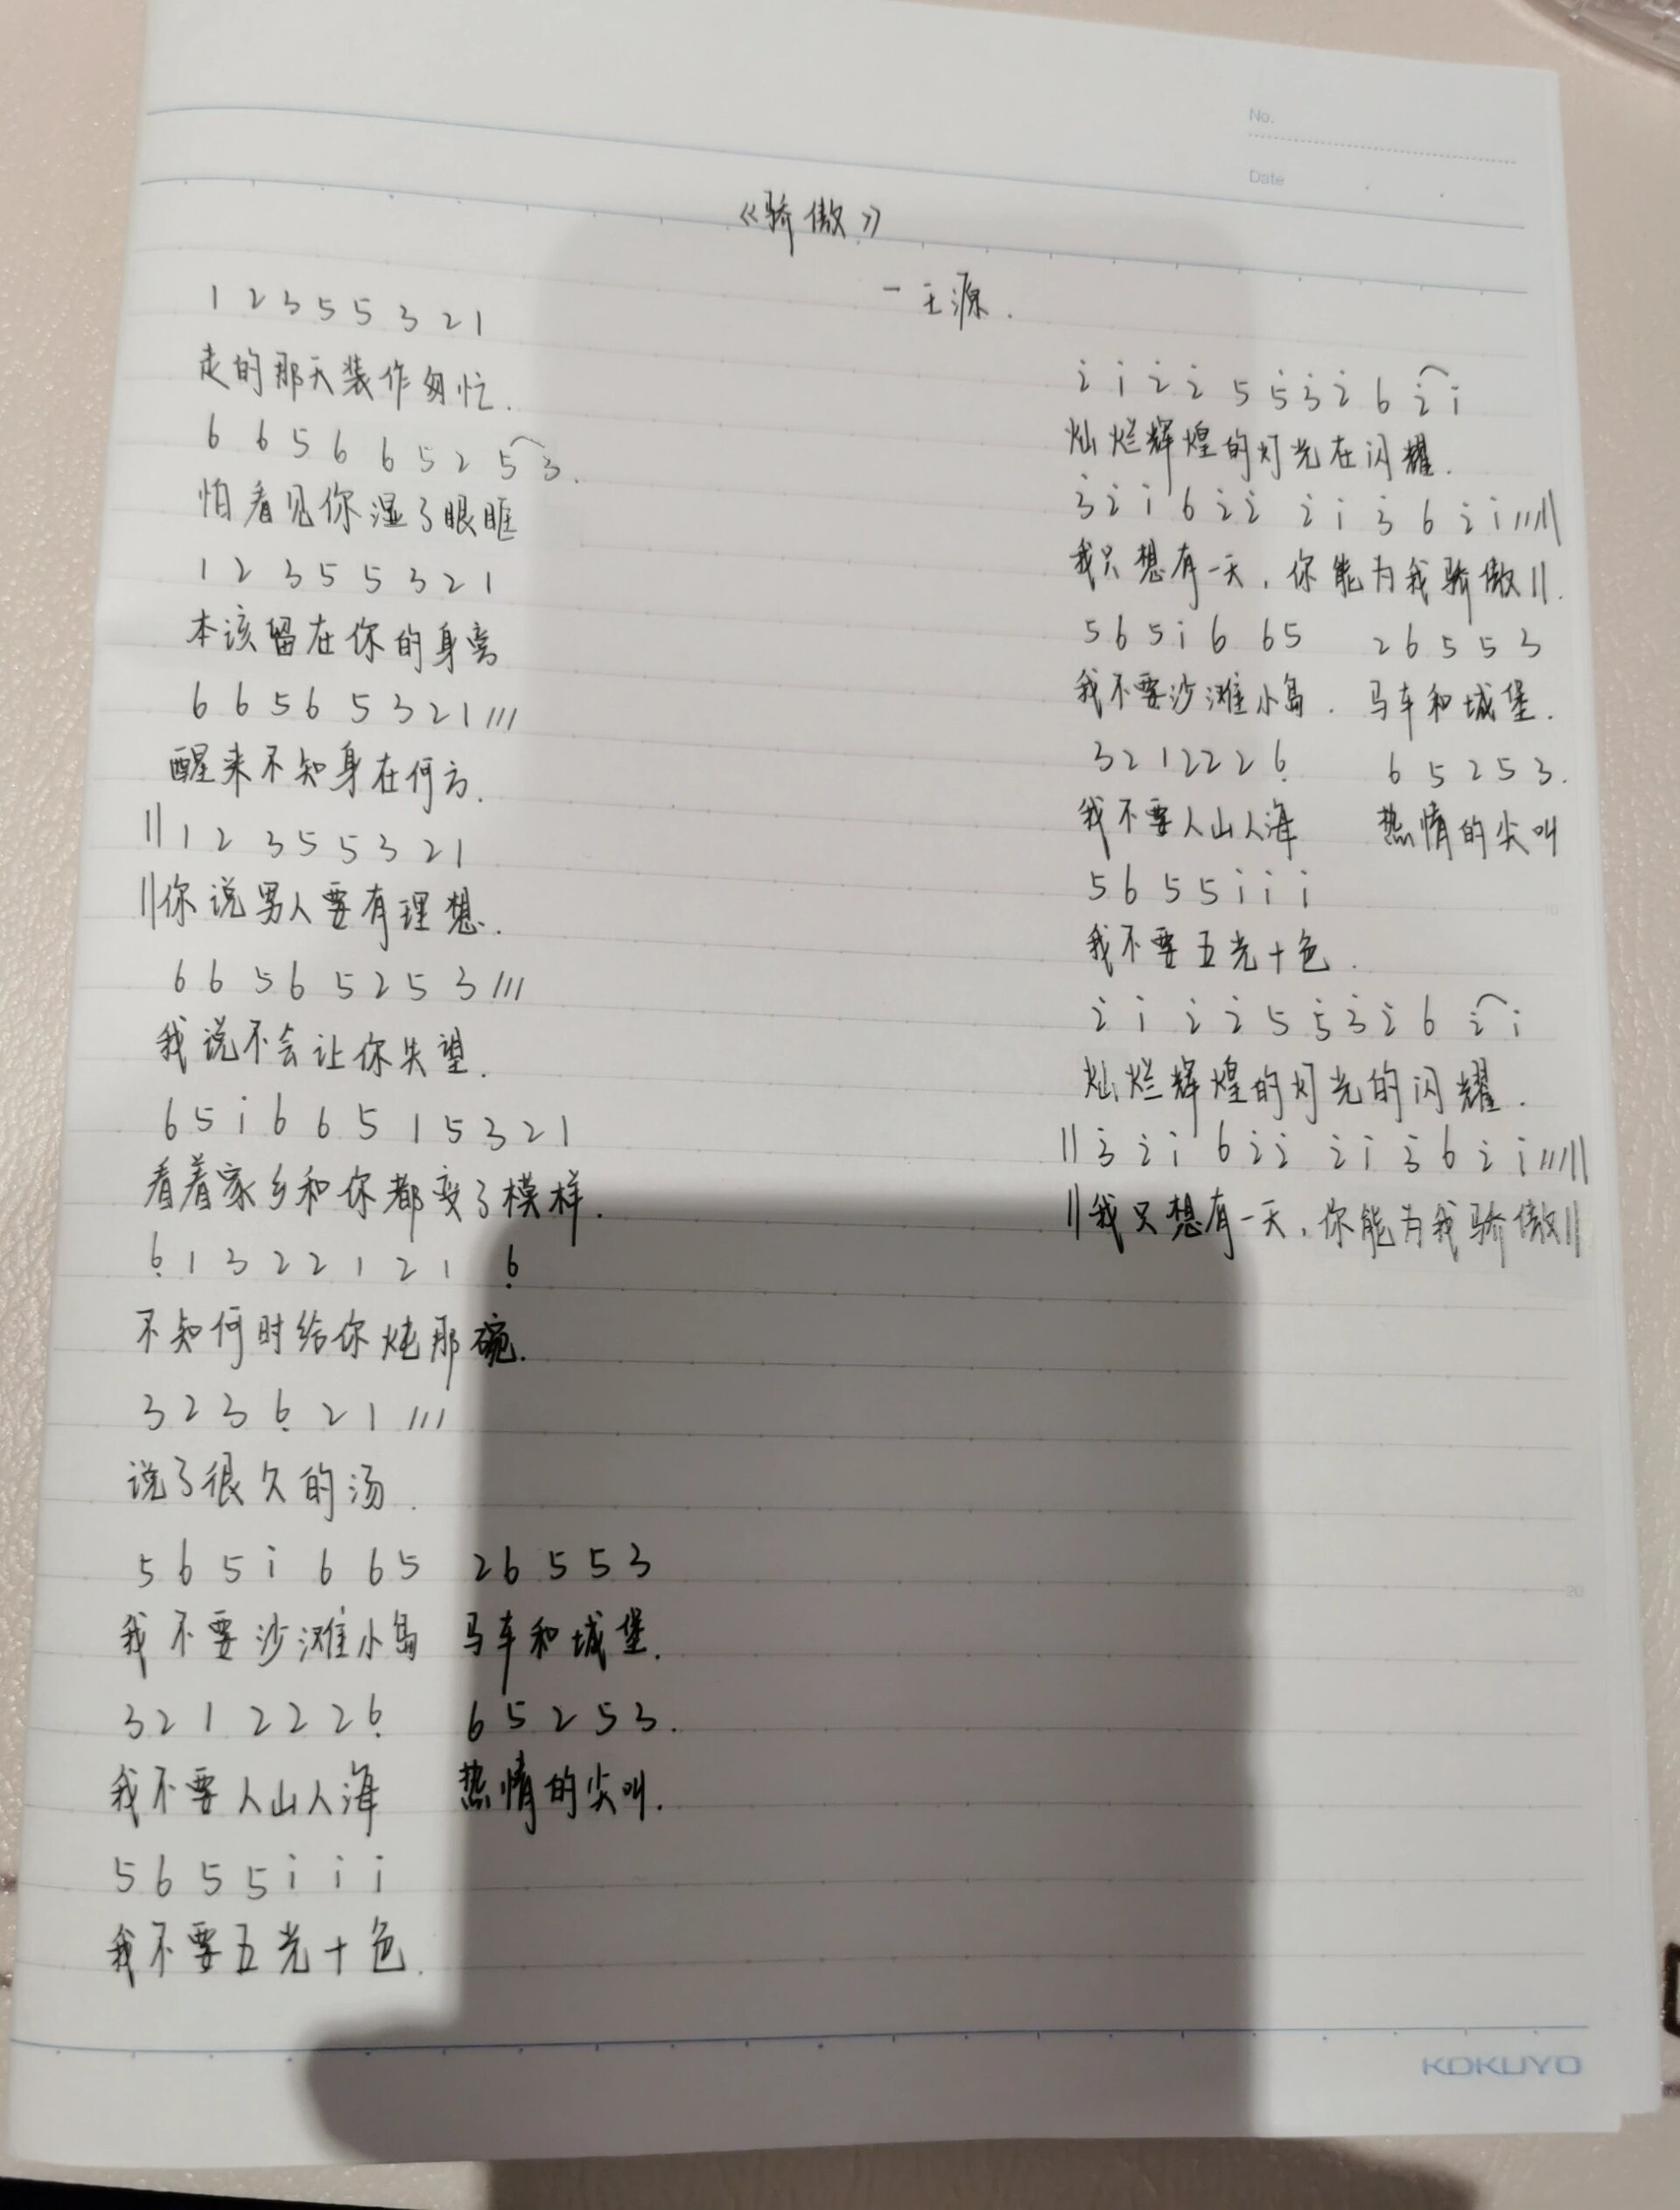 No.
Date
《骄傲》
一王源.
1 2 3 5 5 3 2 1
走的那天装作匆忙.
6 6 5 6 6 5 2 5 3.
怕看见你湿了眼眶
1 2 3 5 5 3 2 1
本该留在你的身旁
6 6 5 6 5 3 2 1 ///
醒来不知身在何方.
|| 1 2 3 5 5 3 2 1
||你说男人要有理想.
6 6 5 6 5 2 5 3 ///
我说不会让你失望.
6 5 i 6 6 5 1 5 3 2 1
看着家乡和你都变了模样.
6̣ 1 3 2 2 1 2 1 6̣
不知何时给你炖那碗.
3 2 3 6̣ 2 1 ///
说了很久的汤.
5 6 5 i 6 6 5 2 6 5 5 3
我不要沙滩小岛 马车和城堡.
3 2 1 2 2 2 6̣ 6 5 2 5 3.
我不要人山人海 热情的尖叫.
5 6 5 5 i i i
我不要五光十色.
2̇ i 2̇ 2̇ 5 5̇ 3̇ 2̇ 6 2̇ i
灿烂辉煌的灯光在闪耀.
3̇ 2̇ i 6 2̇ 2̇ 2̇ i 3̇ 6 2̇ i ///||
我只想有一天,你能为我骄傲||.
5 6 5 i 6 6 5 2 6 5 5 3
我不要沙滩小岛. 马车和城堡.
3 2 1 2 2 2 6̣ 6 5 2 5 3.
我不要人山人海 热情的尖叫
5 6 5 5 i i i
我不要五光十色.
2̇ i 2̇ 2̇ 5 5̇ 3̇ 2̇ 6 2̇ i
灿烂辉煌的灯光的闪耀.
|| 3̇ 2̇ i 6 2̇ 2̇ 2̇ i 3̇ 6 2̇ i ///||
||我只想有一天,你能为我骄傲||
10
20
KOKUYO